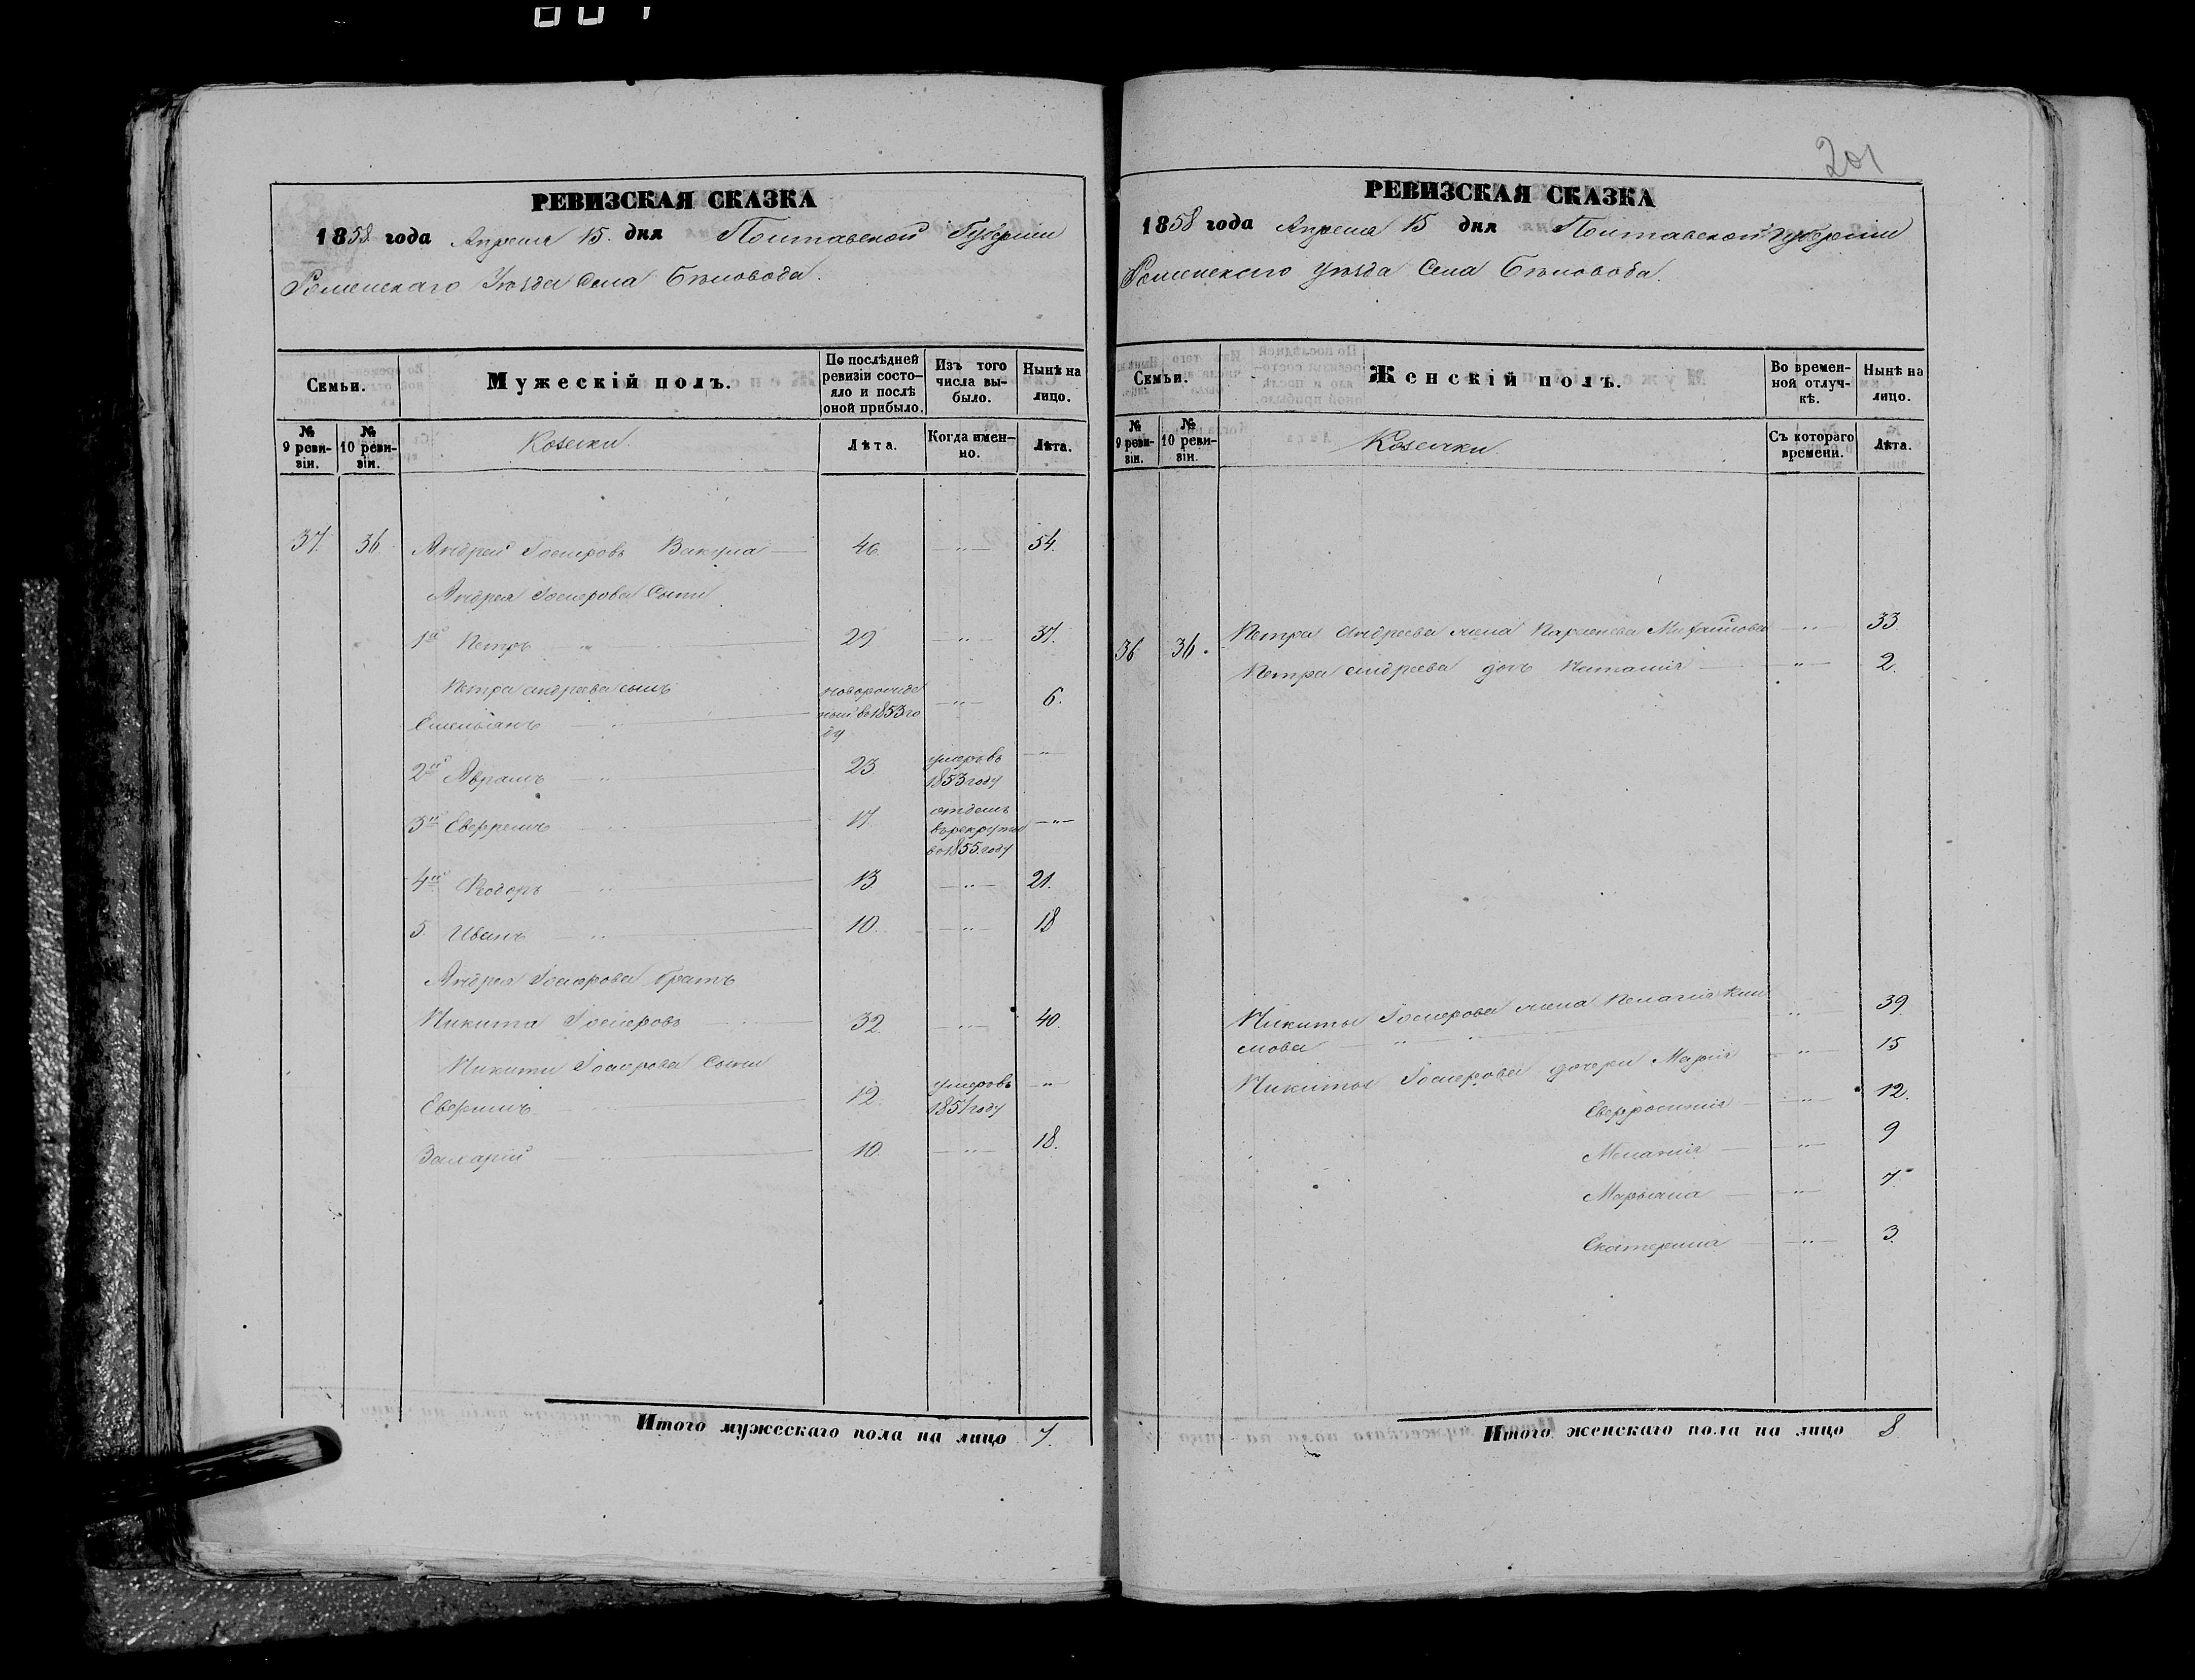 201
РЕВИЗСКАЯ СКАЗКА
1858 года Апреля 15. дня Полтавской Губерніи
Роменскаго Уѣзда Села Бѣловода.
Семьи.
Мужескій полъ.
По послѣдней ревизіи состо-яло и послѣ оной прибыло.
Изъ того числа вы-было.
Нынѣ на лицо.
№ 9 реви-зіи.
№ 10 реви-зіи.
Козаки
Лѣта.
Когда имен-но.
Лѣта.
37. 36. Андрей Іосифовъ Вакула 46. 54.
Андрея Іосифова Сыни
1й Петръ 29 37.
Петра андреева сынъ
Емельянъ новорожде ный во 1853 го ду 6.
2й Абрамъ 23 умеръ въ 1853 году
3й Евфремъ 17 отданъ въ рекруты во 1855. году
4й Федоръ 13 21.
5. Иванъ 10. 18
Андрея Іосифова братъ
Никита Іосифовъ 32. 40.
Никиты Іосифова Сыни
12. умеръ въ 1851 году
Захарій 10. 18.
Итого мужескаго пола на лицо 7.
РЕВИЗСКАЯ СКАЗКА
1858 года Апреля 15 дня Полтавской Губерніи
Роменскаго Уѣзда Села Бѣловода.
Семьи.
Женскій полъ.
Во времен-ной отлуч-кѣ.
Нынѣ на лицо.
№ 9 реви-зіи.
№ 10 реви-зіи.
Козачки
Съ котораго времени.
Лѣта.
36 36. Петра Андреева жена Михайлова 33
Петра андреева дочь Наталія 2.
Никиты Іосифова жена Пелагія 39
15
Никиты Іосифова дочери Марія
Евфросинія 12.
Меланія 9
Марьяна 7
Екатерина 3.
Итого женскаго пола на лицо 8